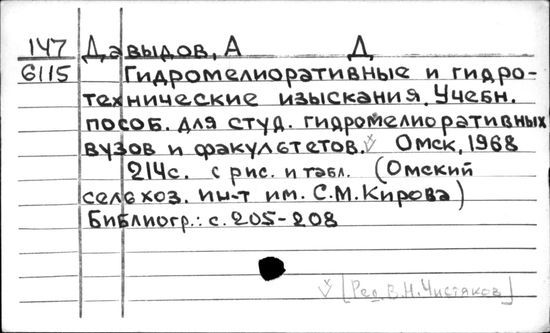 147 Давыдов, А Д
6115 Гидромелиоративные и гидро-
технические изыскания. Учебн.
пособ. для студ. гидромелиоративных
вузов и факультетов. Омск, 1968
214с. с рис. и табл. (Омский
сельхоз. ин-т им. С.М. Кирова)
Библиогр.: с. 205-208
[Ред. В.Н. Чистяков]